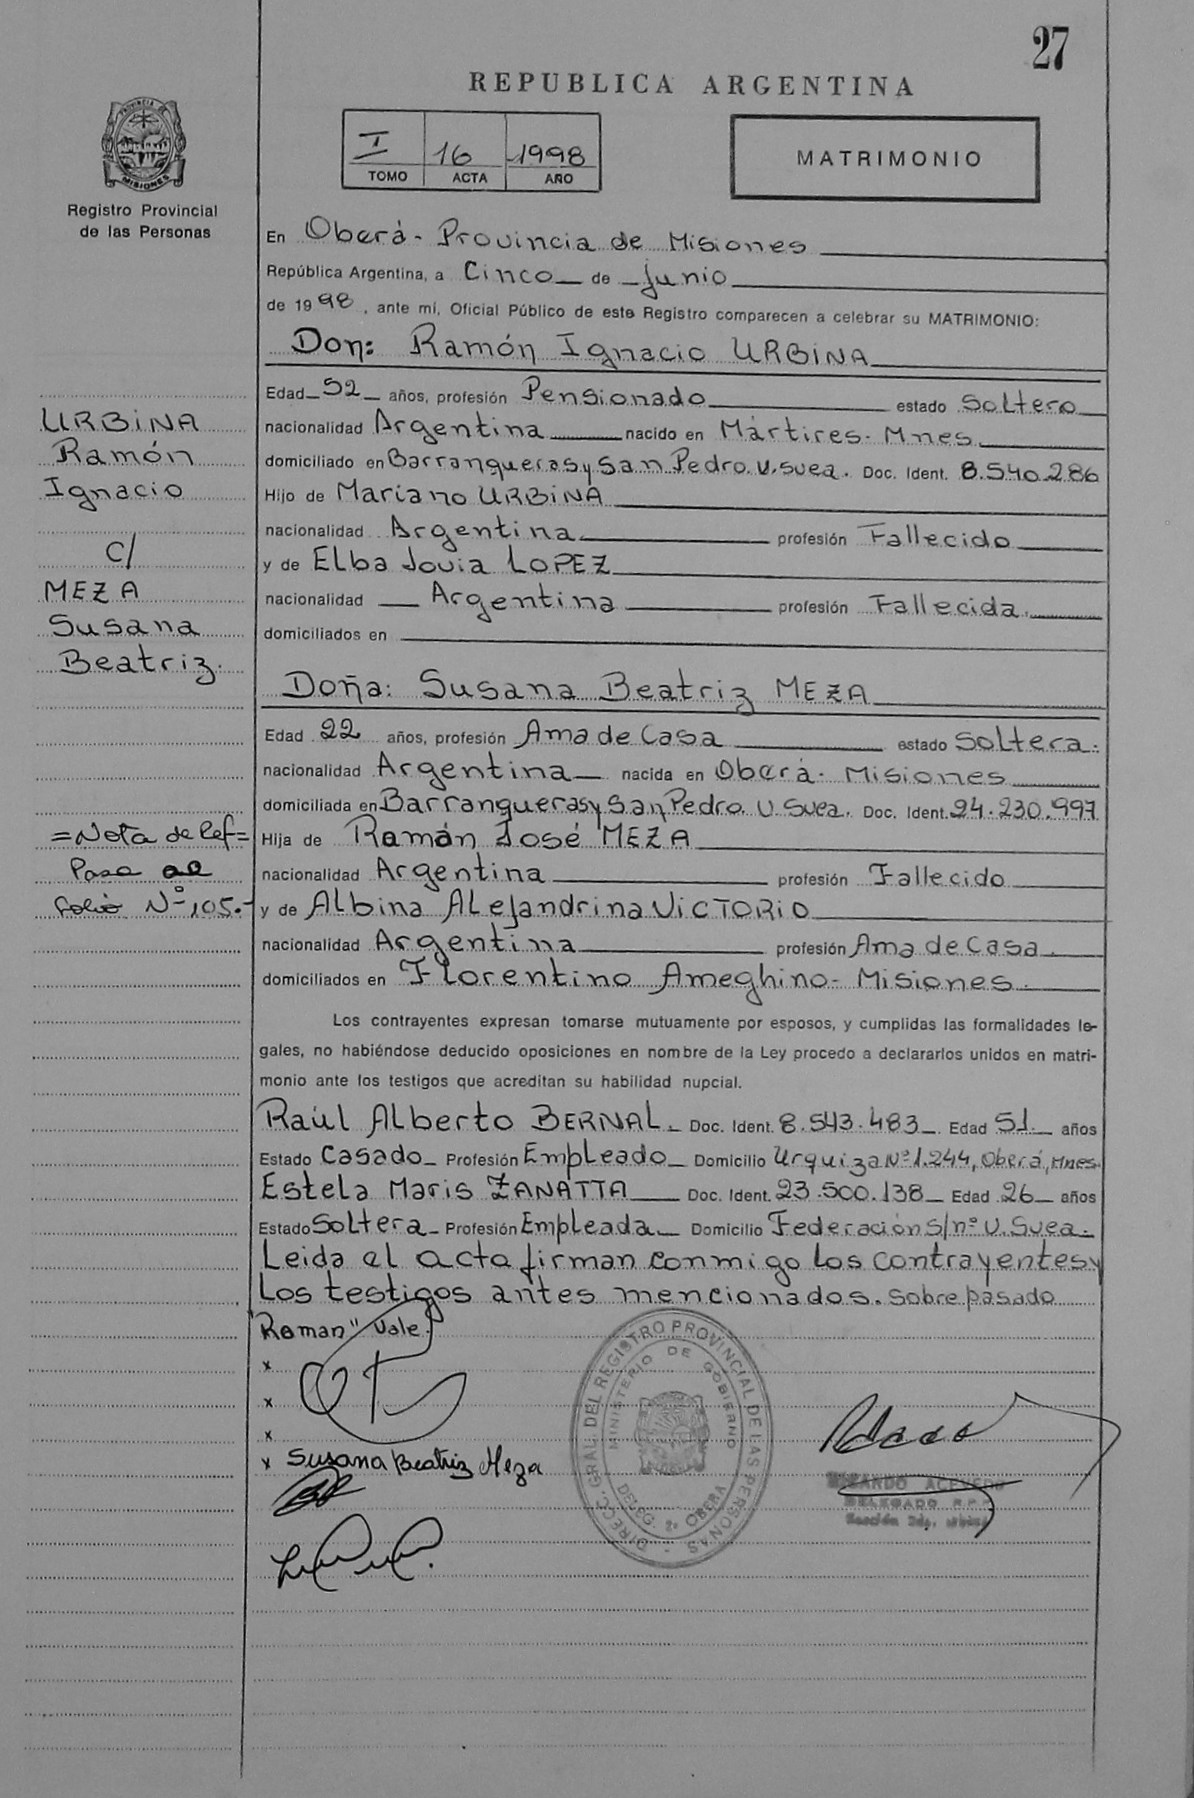 27
REPUBLICA ARGENTINA
PROVINCIA DE
MISIONES
Registro Provincial
de las Personas
I 16 1998
TOMO ACTA AÑO
MATRIMONIO
En Oberá - Provincia de Misiones
República Argentina, a Cinco de junio
de 1998, ante mí, Oficial Público de este Registro comparecen a celebrar su MATRIMONIO:
Don: Ramón Ignacio URBINA
Edad 52 años, profesión Pensionado estado Soltero
nacionalidad Argentina nacido en Mártires - Mnes.
domiciliado en Barranqueras y San Pedro. V. Suea. Doc. Ident. 8.540.286
Hijo de Mariano URBINA
nacionalidad Argentina profesión Fallecido
y de Elba Jovia LOPEZ
nacionalidad Argentina profesión Fallecida.
domiciliados en
URBINA
Ramón
Ignacio
C/
MEZA
Susana
Beatriz.
Doña: Susana Beatriz MEZA
Edad 22 años, profesión Ama de Casa estado Soltera.
nacionalidad Argentina nacida en Oberá - Misiones
domiciliada en Barranqueras y San Pedro V. Suea. Doc. Ident. 24.230.997
Hija de Ramón José MEZA
nacionalidad Argentina profesión Fallecido
y de Albina Alejandrina VICTORIO
nacionalidad Argentina profesión Ama de Casa.
domiciliados en Florentino Ameghino - Misiones.
= Nota de Ref =
Pasa al
folio Nº 105.-
Los contrayentes expresan tomarse mutuamente por esposos, y cumplidas las formalidades le-
gales, no habiéndose deducido oposiciones en nombre de la Ley procedo a declararlos unidos en matri-
monio ante los testigos que acreditan su habilidad nupcial.
Raúl Alberto BERNAL Doc. Ident. 8.543.483 Edad 51 años
Estado Casado Profesión Empleado Domicilio Urquiza Nº 1.244, Oberá, Mnes.
Estela Maris ZANATTA Doc. Ident. 23.500.138 Edad 26 años
Estado Soltera Profesión Empleada Domicilio Federación s/nº V. Suea.
Leida el acta firman conmigo los contrayentes y
los testigos antes mencionados. Sobre pasado
"Roman" Vale.
x
x
x
x Susana Beatriz Meza
DIRECC. GRAL. DEL REGISTRO PROVINCIAL DE LAS PERSONAS
MINISTERIO DE GOBIERNO
DELEG. 2º OBERA
ACEVEDO
DELEGADO R.P.P.